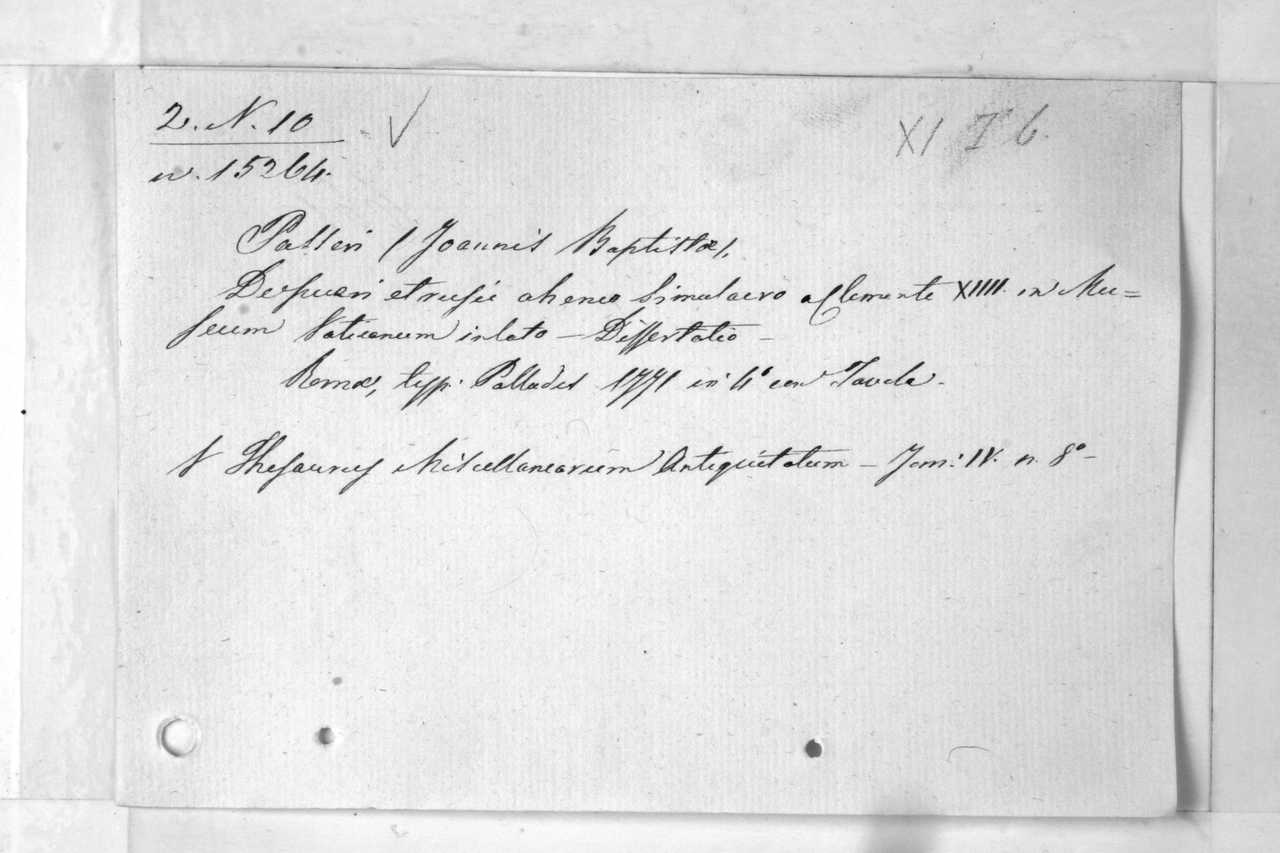 2. N. 10 V XI I 6.
n. 15264.
Passeri (Joannis Baptistæ).
De pueri etrusci aheneo Simulacro a Clemente XIIII. in Mu=
seum Vaticanum inlato – Dissertatio –
Romæ, typ. Palladis 1771 in 4° con Tavola.
V Thesaurus Miscellanearum Antiquitatum – Tom: IV. n. 8° –